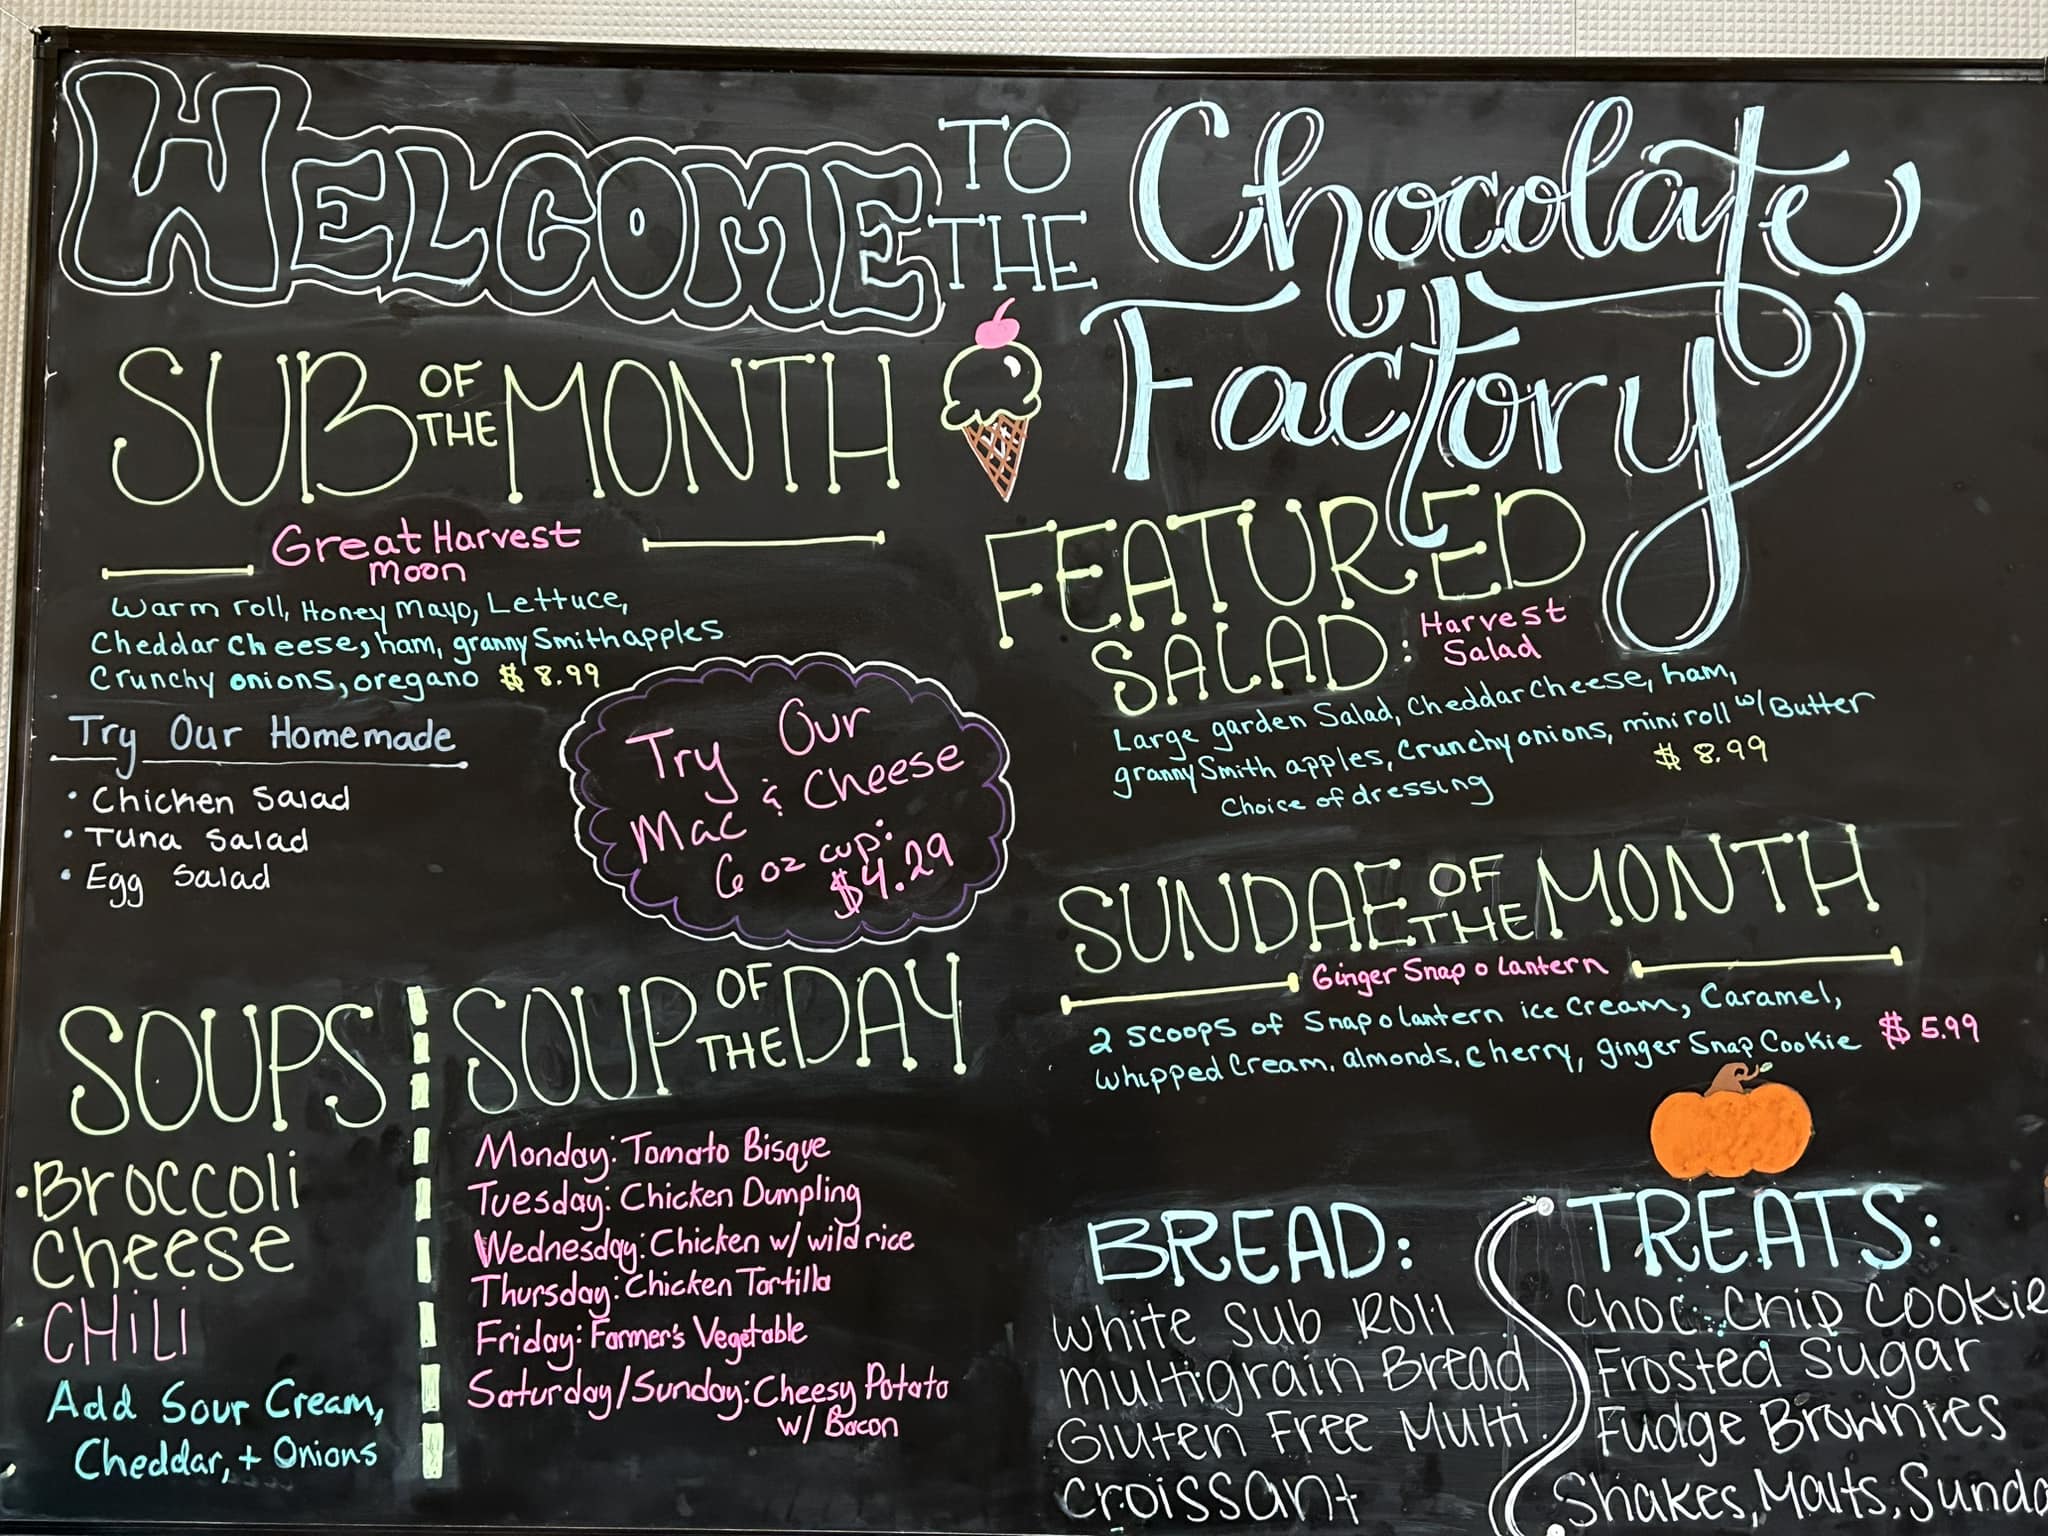 WELCOME TO THE Chocolate Factory
SUB OF THE MONTH
Great Harvest
Moon
Warm roll, Honey Mayo, Lettuce,
Cheddar Cheese, ham, granny Smith apples
Crunchy onions, oregano $8.99
Try Our Homemade
• Chicken Salad
• Tuna Salad
• Egg Salad
Try Our
Mac & Cheese
6 oz cup:
$4.29
FEATURED
SALAD: Harvest
Salad
Large garden Salad, Cheddar Cheese, ham,
granny Smith apples, Crunchy onions, mini roll w/ Butter
Choice of dressing $8.99
SUNDAE OF THE MONTH
Ginger Snap o Lantern
2 scoops of Snap o lantern ice Cream, Caramel,
whipped Cream, almonds, cherry, ginger Snap Cookie $5.99
SOUPS
• Broccoli
Cheese
• CHiLi
Add Sour Cream,
Cheddar, + Onions
SOUP OF THE DAY
Monday: Tomato Bisque
Tuesday: Chicken Dumpling
Wednesday: Chicken w/ wild rice
Thursday: Chicken Tortilla
Friday: Farmer's Vegetable
Saturday/Sunday: Cheesy Potato
w/ Bacon
BREAD:
White Sub Roll
Multigrain Bread
Gluten Free Multi
Croissant
TREATS:
Choc. Chip Cookie
Frosted Sugar
Fudge Brownies
Shakes, Malts,